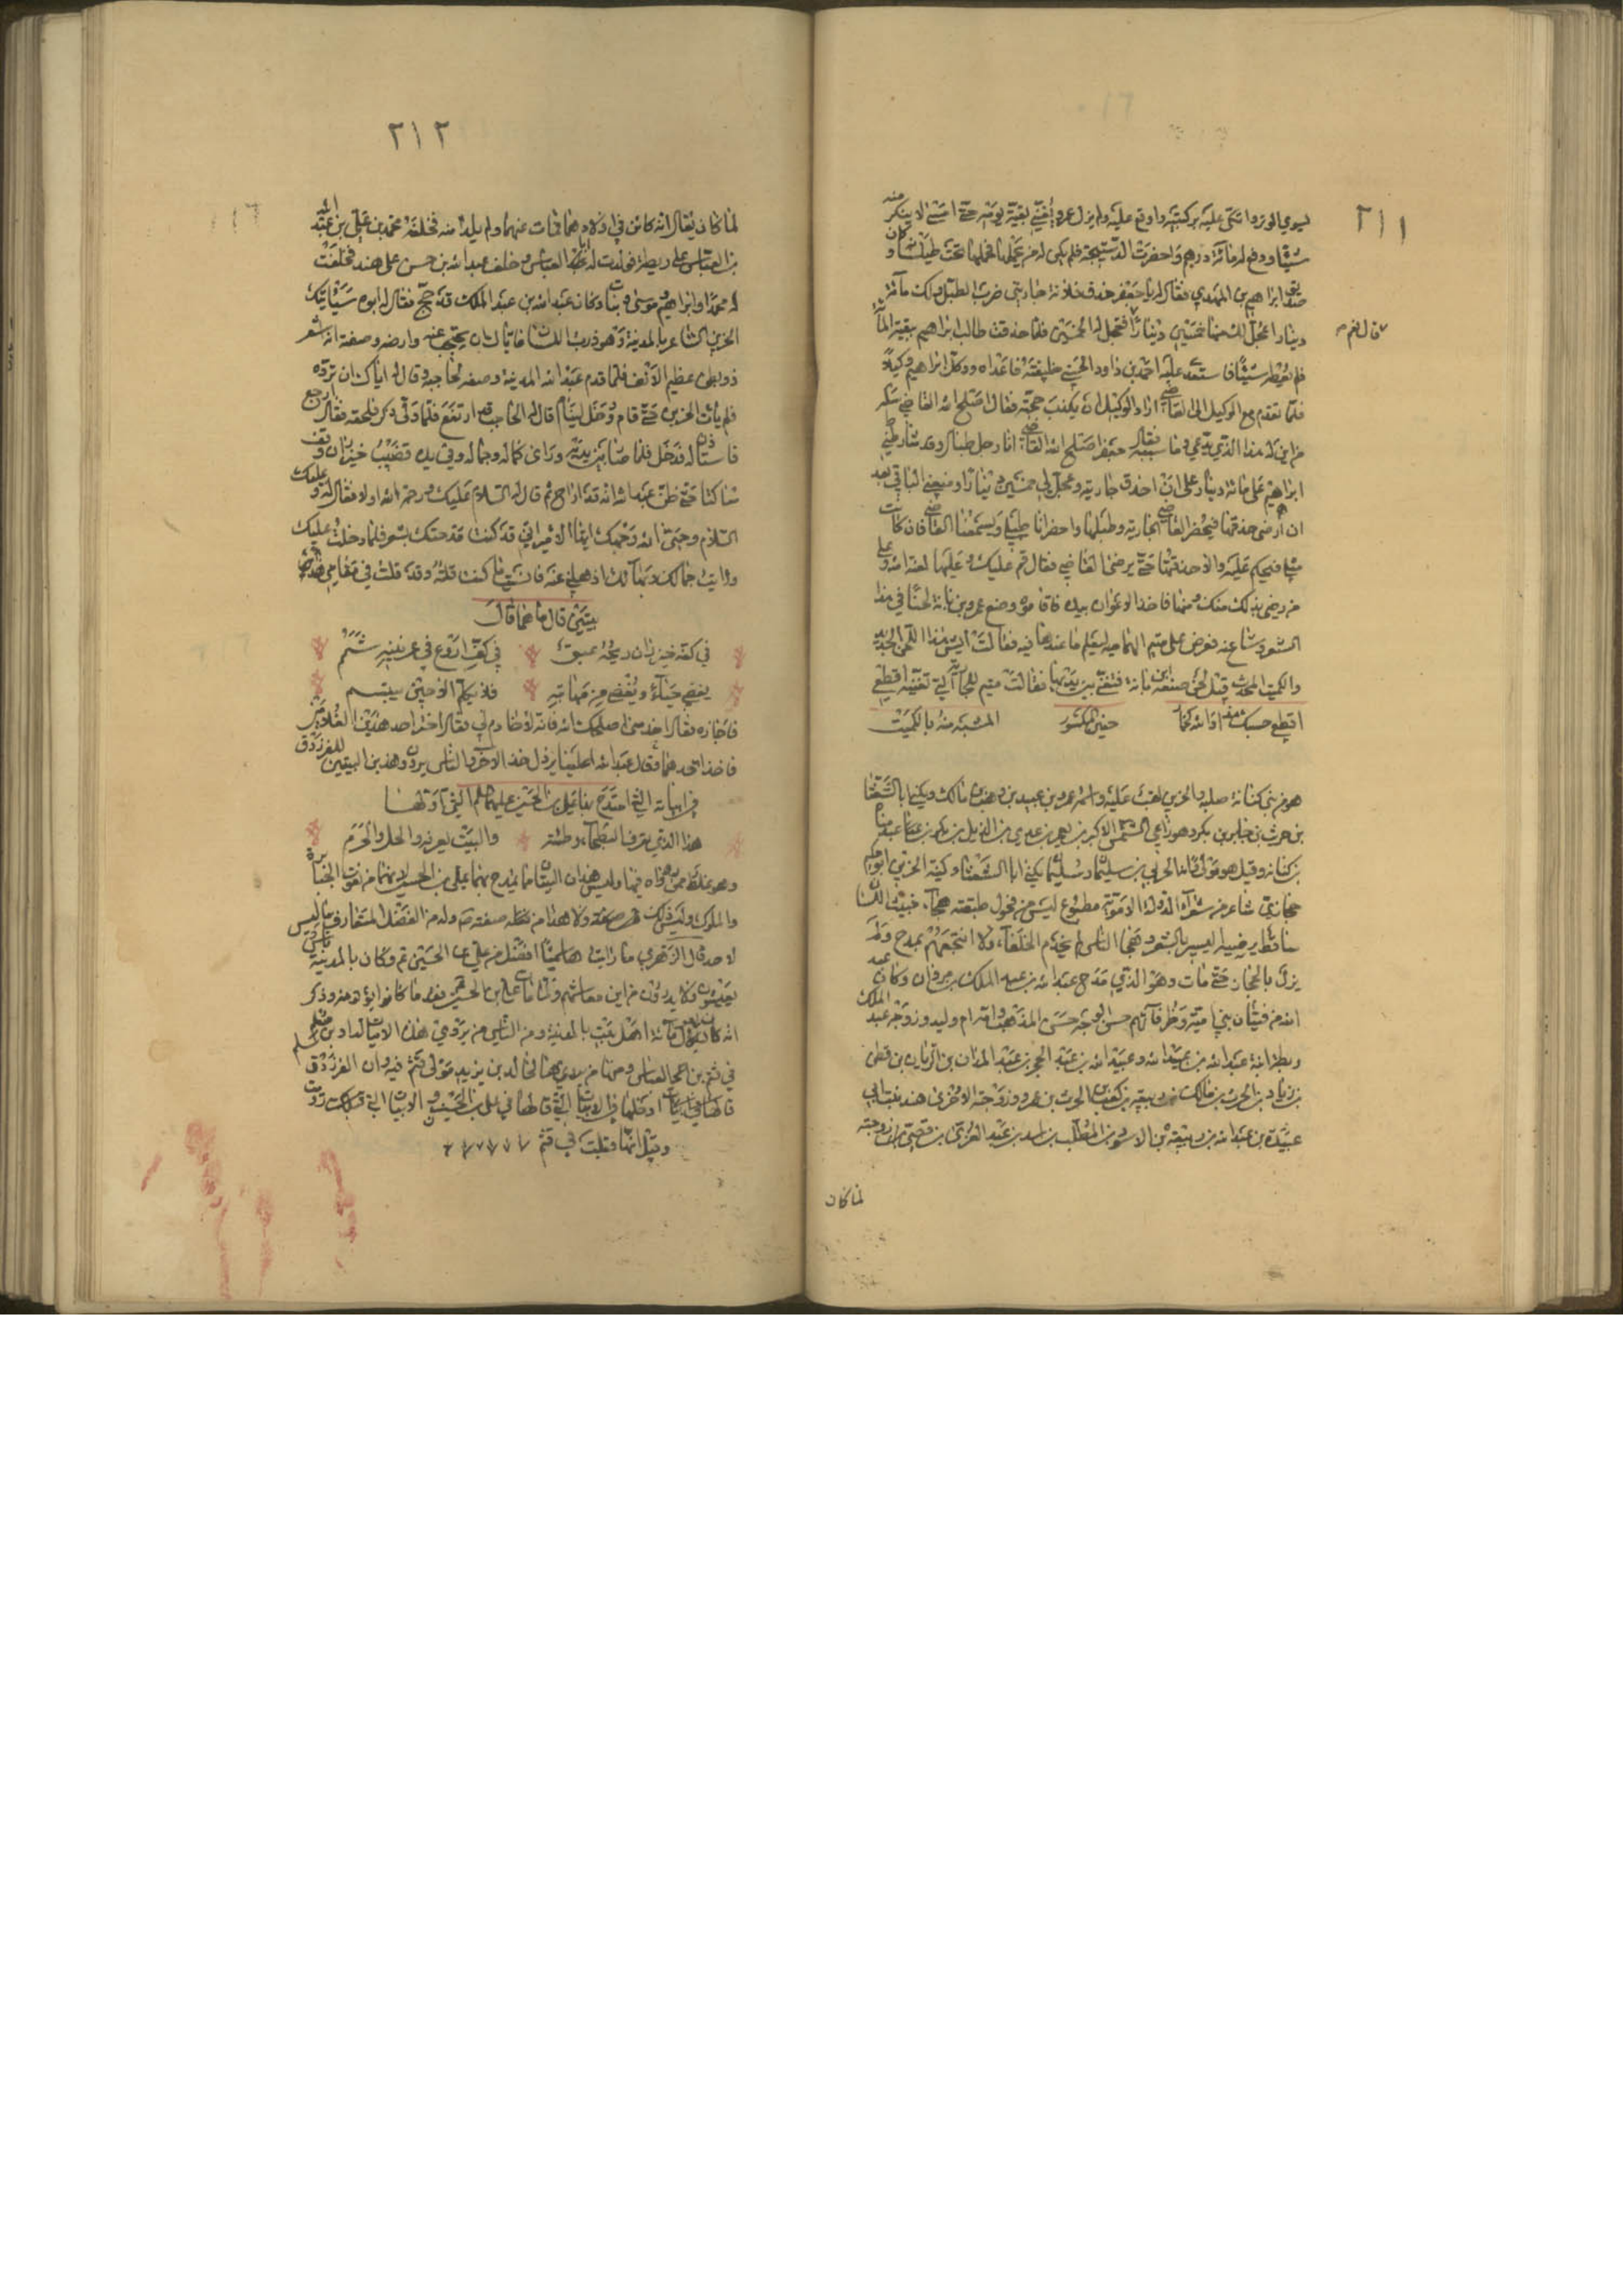 ٢١١
ليسوي الوتر واتكى عليه بركبتيه واوقع عليه ولم يزل عمرو يغني بقية يومه حتى امسى لا ينكر منه
شيئا ودفع له مائة درهم واحضرت الدستيجة فلم يكن له من يحملها فحملها تحت طيلسانه وكان
صديق ابراهيم بن المهدي فقال له يا جعفر حذق فلانة جاريتي ضرب الطبل ولك مائة
دينار اعجل لك منها خمسين دينارا فعجل له الخمسين فلما حذقت طالب ابراهيم بتقية المائة
قال نعم
فلم يعطه شيئا فاستعدى عليه احمد بن داود الحسني خليفته فاعداه ووكل ابراهيم وكيلا
فلما تقدم مع الوكيل الى القاضي اراد الوكيل ان يكسر حجته فقال اصلح الله القاضي سله
من اين له هذا الذي يدعي وما سببه فقال جعفر اصلح الله القاضي انا رجل طبال وقد شارطني
ابراهيم على مائة دينار على ان احذق جاريته وعجل لي خمسين دينارا ومنعني الباقي بعد
ان رضي حذقها فيحضر القاضي الجارية وطبلها واحضر انا طبلي ويسمعنا القاضي فان كانت
مثلي فيحكم عليه والا حذقتها حتى يرضى القاضي فقال قم عليك وعليها لعنة الله وعلى
من رضي بذلك منك ومنها فاخذ الاعوان بيده فاقاموه وصنع عمرو بن بانة لحنا في هذا
الشعر وشاع عنه فعرض على متيم الهشامية ليعلم ما عندها فيه فقالت ليس هذا اللحن الجديد
والكميت المحدث قيل لحن صنعه ابن بانة فتغنى بين يديها فقالت متيم للجارية التي تغنيه اقطعي
اقطعي حسبك هذا والله حنين المكسور المشبه منه بالكميت
هو من بني كنانة صليبة والحزين لقب عليه واسمه عمرو بن عبيد بن وهيب بن مالك ويكنى ابا الشعثا
بن حريث بن جابر بن بكر وهو راعي الشمس الاكبر بن يعمر بن عدي بن الديل بن بكر بن عبد مناة
بن كنانة وقيل هو مولى وانه الحزين بن سليمان وسليمان يكنى ابا الشعثا وكنية الحزين ابو حكيم
حجازي شاعر من شعرآء الدولة الاموية مطبوع ليس من فحول طبقته هجآء خبيث اللسان
ساقط يرضيه اليسير بالشعر وهجا الناس لم يخدم الخلفاء ولا انتجعهم بمدح ولم
يزل بالحجاز حتى مات وهو الذي مدح عبد الله بن عبد الملك بن مروان وكان عبد
الله من فتيان بني امية وظرفآئهم حسن الوجه حسن المذهب وامه ام وليد وزوجه عبد الملك
ريطة ابنة عبد الله بن عبد الله وعبيد الله بن عبد الحجر بن عبد المدان بن الريان بن قطن
بن زياد بن الحرث بن مالك بن ربيعة بن كعب بن الحرث بن عمرو وزوجته الاخرى هند بنت ابي
عبيدة بن عبد الله بن ربيعة بن الاسود بن المطلب بن اسد بن عبد العزى بن قصي بن زوجته
لما كان
٢١٢
لما كان يقال انه كائن في اولادهما فمات عنهما ولم يلد له منه فخلف محمد بن علي بن عبد الله
بن العباس على ريطة فولدت له ابا العباس وخلف عبد الله بن حسن على هند فخلفت
له محمدا وابراهيم وموسى وبنات وكان عبد الله بن عبد الملك قد حج فقال له ابوه سيأتيك
الحزين الشاعر بالمدينة وهو ذرب اللسان فاياك ان تحتجب عنه وارضه وصفته انه اشعر
ذو بطن عظيم الانف فلما قدم عبد الله المدينة وصفه لحاجبه وقال له اياك ان ترده
فلم يأت الحزين حتى قام ودخل لينام فقال له الحاجب قد ارتفع فلما ولى ذكر فلحقه فقال ارجع
فاستأذن له فدخل فلما صار بين يديه وراى كماله وجماله وفي يده قضيب خيزران وقف
ساكتا حتى ظن عبد الله انه قد ارتج ثم قال له السلام عليك ورحمة الله اولا فقال له وعليك
السلام وحيى الله وجهك ايها الامير اني قد كنت مدحتك بشعر فلما دخلت عليك
ورايت جمالك وبهآئك اذهلني عنه فانسيت ما كنت قلته وقد قلت في مقامي هذا
بيتين قال ما هما قال
في كفه خيزران ريحه عبق في كف اروع في عرنينه شمم
يغضي حيآء ويغضى من مهابته فلا يكلم الا حين يبتسم
فاجازه فقال اخدمني اصلحك الله فانه لا خادم لي فقال اختر احد هذين الغلامين
فاخذ احدهما فقال عبد الله اعلينا يرذل خذ الاخر والناس يروون هذين البيتين للفرزدق
في ابياته التي امتدح بها علي بن الحسين عليهما السلم التي اولها
هذا الذي تعرف البطحآء وطئته والبيت يعرفه والحل والحرم
وهو غلط ممن رواه فيها وليس هذان البيتان مما يمدح بهما علي بن الحسين لانهما من نعوت الجبابرة
والملوك وليس كذلك هو صفته ولا هذا من مثله صفته وله من الفضل المتعارف ما ليس
لاحد قال الزهري ما رايت هاشميا افضل من علي بن الحسين ثم وكان بالمدينة ناس
يعيشون ولا يدرون من اين معاشهم ولما مات علي بن الحسين فقدوا ما كانوا يؤتون به وذكر
انه كان يعول مائة اهل بيت بالمدينة ومن الناس من يروي هذه الابيات لداود بن سلم
في قثم بن العباس ومنهم من يرويها لخالد بن يزيد مولى قثم فيه وان الفرزدق
قالها في ابيات ادخلها في الابيات التي قالها في علي بن الحسين والابيات التي
وقيل انها قيلت في قثم